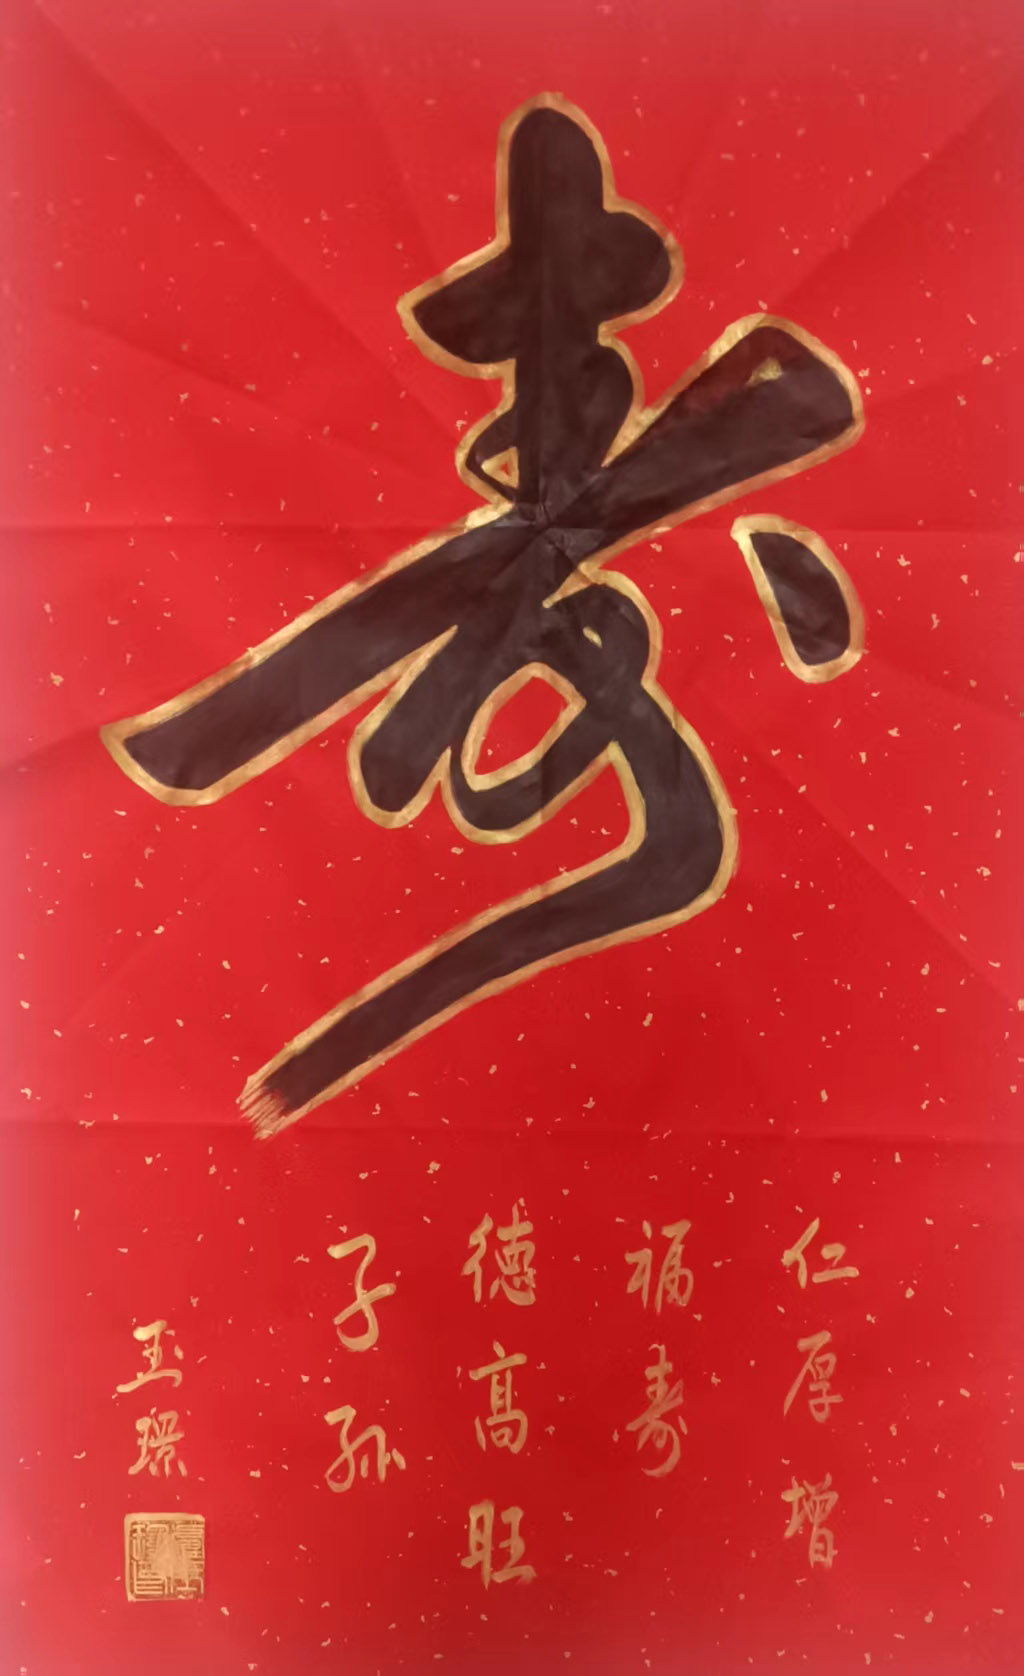 寿
仁厚增
福寿
德高旺
子孙
玉璟